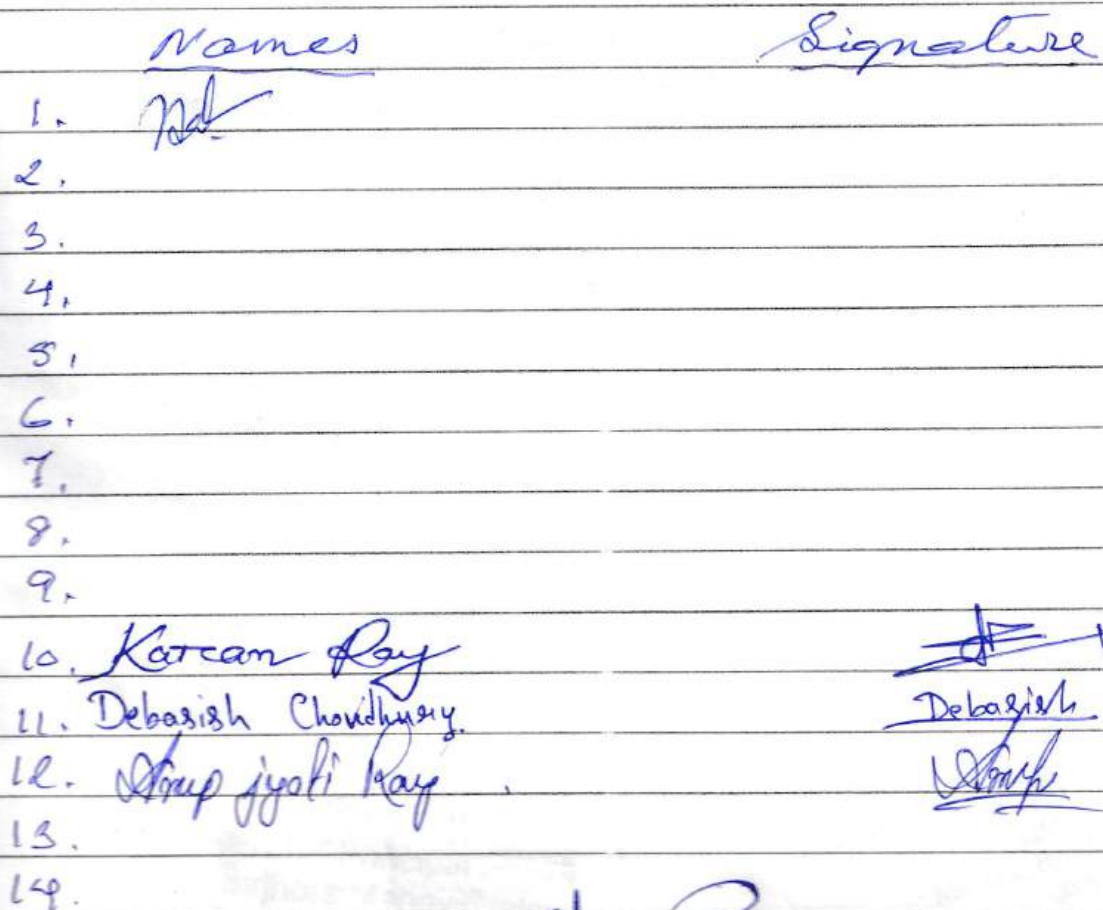 Names Signature
1.
2.
3.
4.
5.
6.
7.
8.
9.
10. Karan Ray
11. Debasish Choudhury. Debasish
12. Anup jyoti Ray. Anup
13.
14.